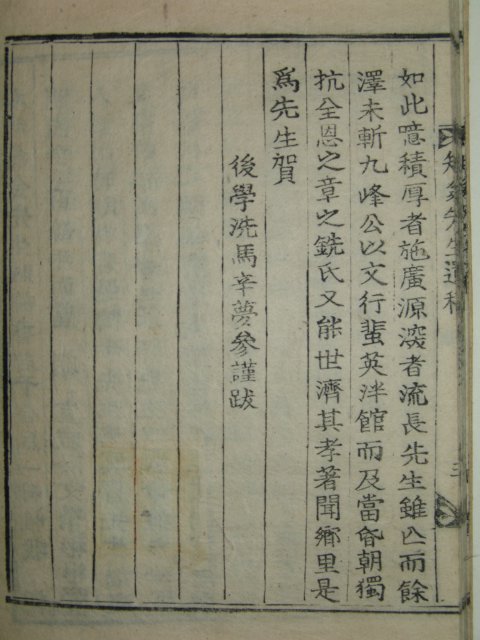 先生遺稿
三
如此噫積厚者施廣源深者流長先生雖亾而餘
澤未斬九峰公以文行蜚英泮館而及當昏朝獨
抗全恩之章之銑氏又能世濟其孝著聞鄕里是
爲先生賀
後學洗馬辛夢參謹跋